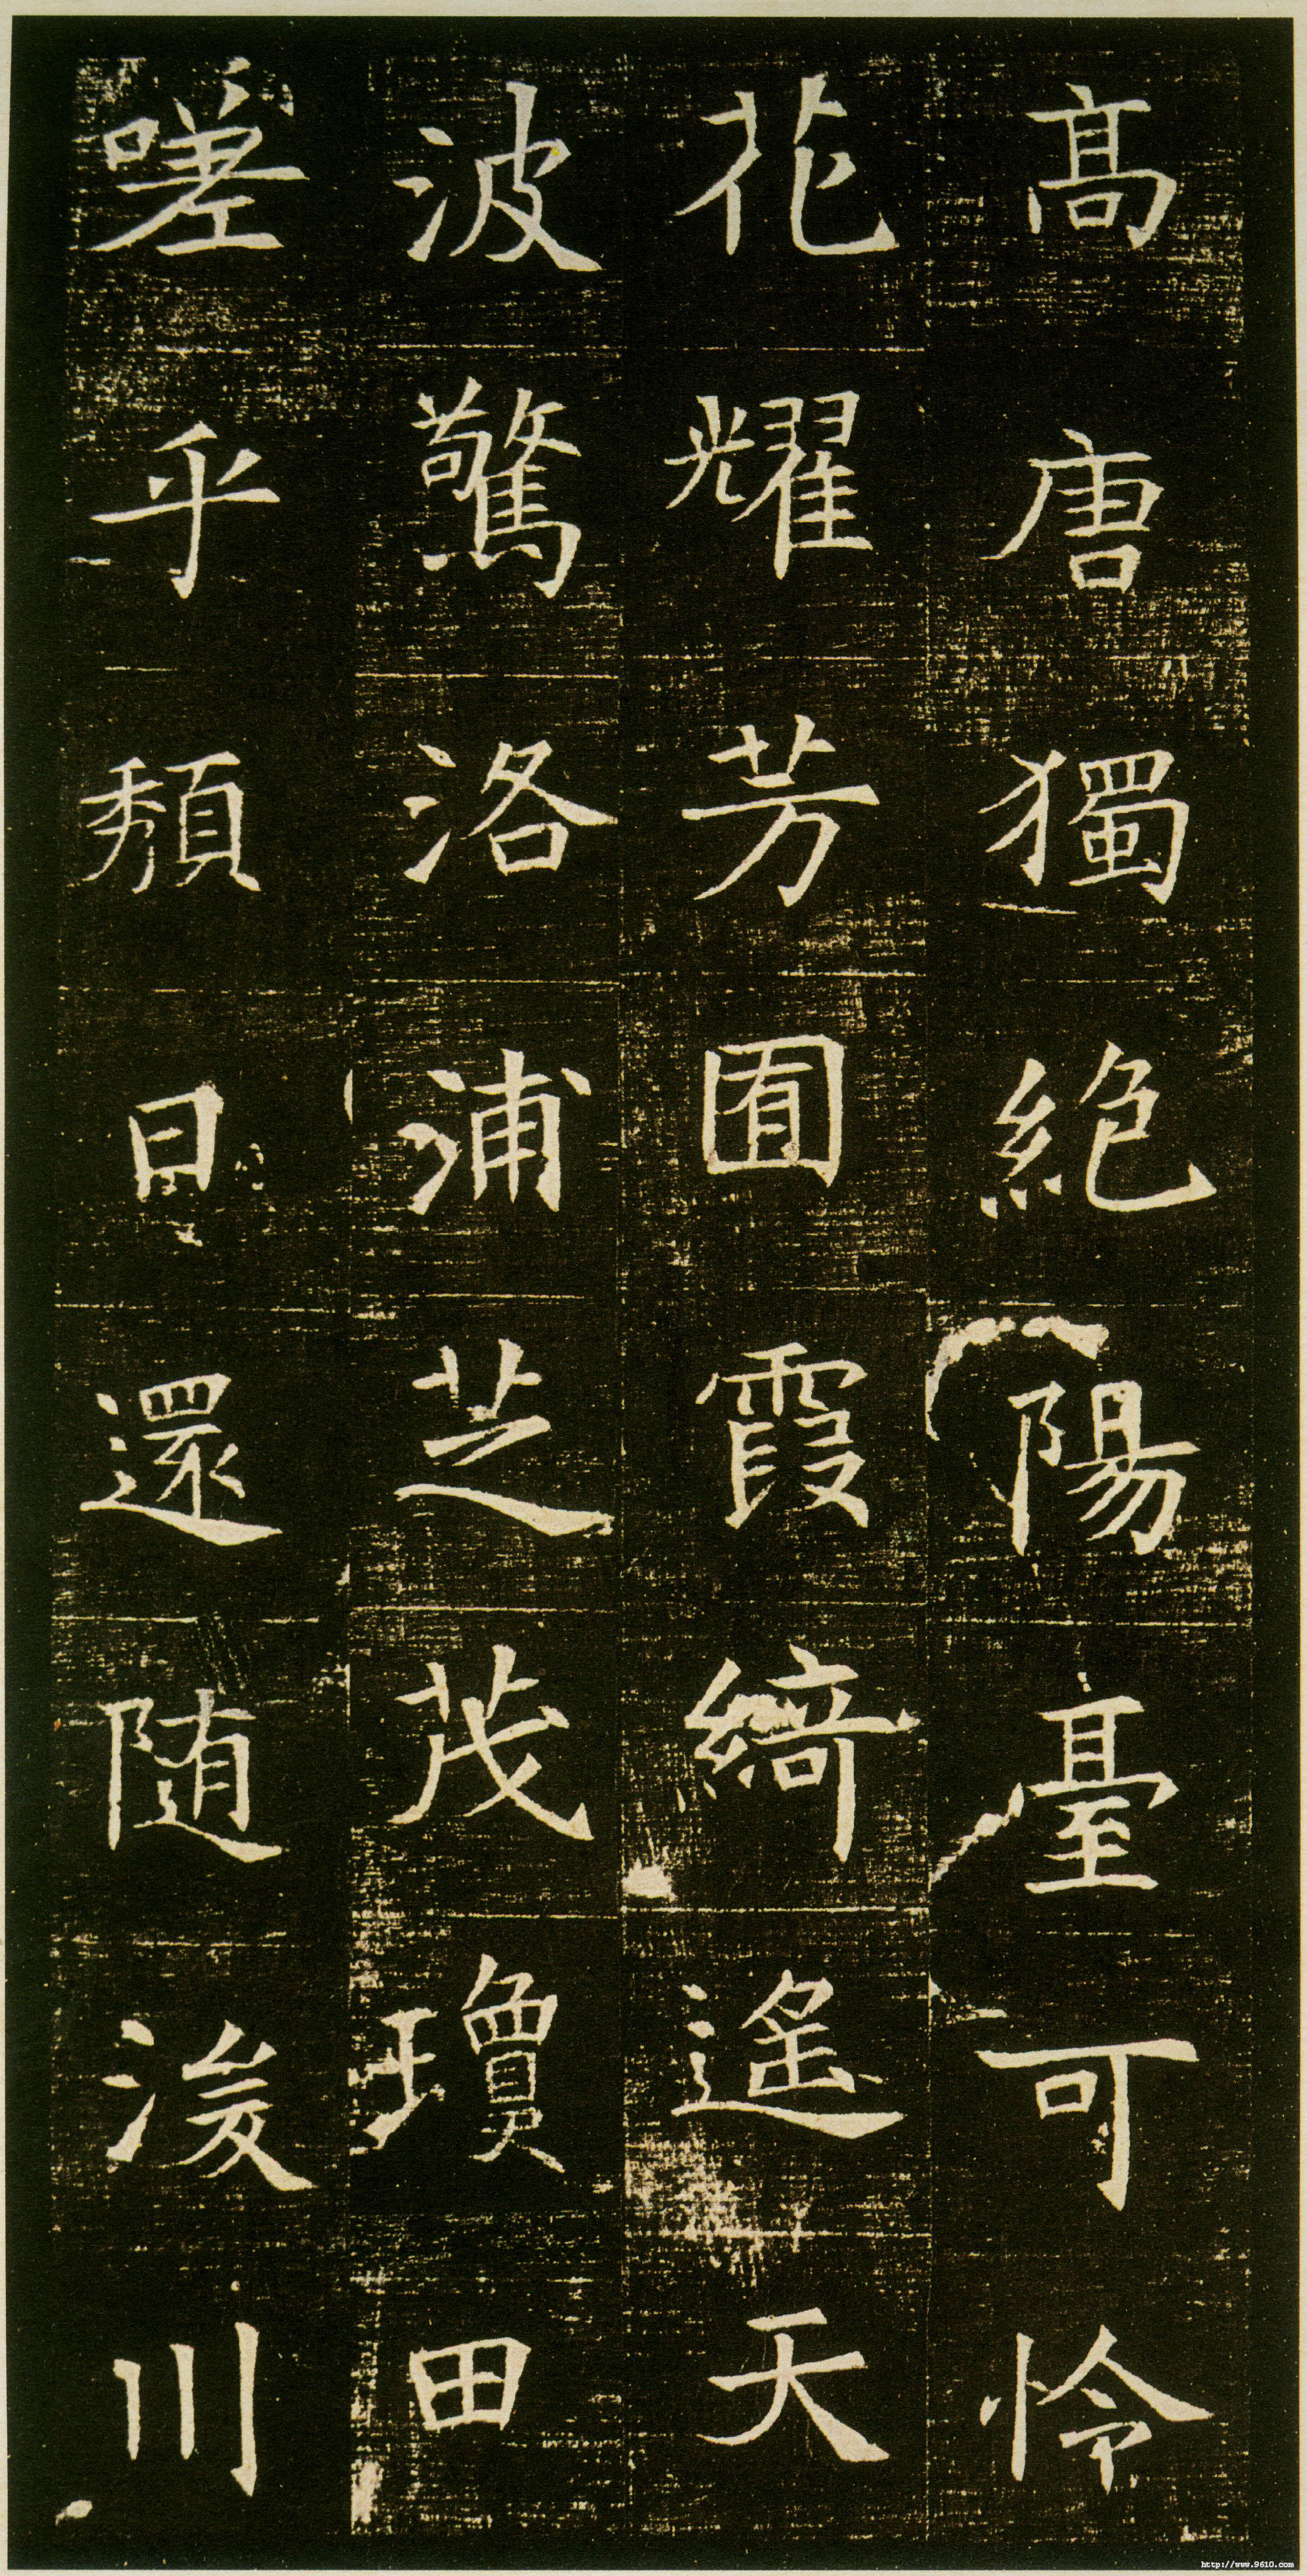 高唐獨絕陽臺可怜
花耀芳囿霞綺遙天
波驚洛浦芝茂瓊田
嗟乎頹日還随浚川
http://www.9610.com